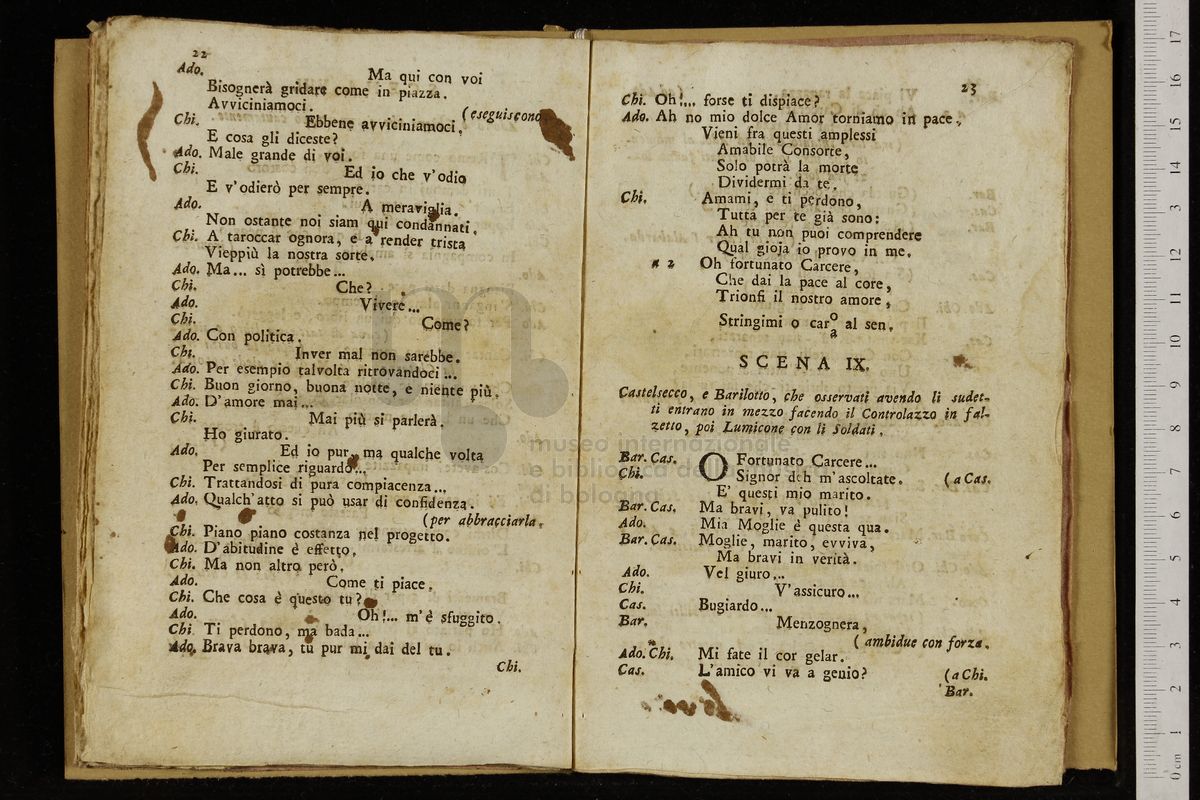 22
Ado. Ma qui con voi
Bisognerà gridare come in piazza.
Avviciniamoci. (eseguiscono
Chi. Ebbene avviciniamoci,
E cosa gli diceste?
Ado. Male grande di voi.
Chi. Ed io che v'odio
E v'odierò per sempre.
Ado. A meraviglia.
Non ostante noi siam qui condannati,
Chi. A taroccar ognora, e a render trista
Vieppiù la nostra sorte.
Ado. Ma... sì potrebbe...
Chi. Che?
Ado. Vivere...
Chi. Come?
Ado. Con politica.
Chi. Inver mal non sarebbe.
Ado. Per esempio talvolta ritrovandoci...
Chi. Buon giorno, buona notte, e niente più.
Ado. D'amore mai...
Chi. Mai più si parlerà.
Ho giurato.
Ado. Ed io pur, ma qualche volta
Per semplice riguardo...
Chi. Trattandosi di pura compiacenza...
Ado. Qualch'atto si può usar di confidenza.
(per abbracciarla.
Chi. Piano piano costanza nel progetto.
Ado. D'abitudine è effetto.
Chi. Ma non altro però.
Ado. Come ti piace.
Chi. Che cosa è questo tu?
Ado. Oh!... m'è sfuggito.
Chi. Ti perdono, ma bada...
Ado. Brava brava, tu pur mi dai del tu.
Chi.
23
Chi. Oh!... forse ti dispiace?
Ado. Ah no mio dolce Amor torniamo in pace.
Vieni fra questi amplessi
Amabile Consorte,
Solo potrà la morte
Dividermi da te.
Chi. Amami, e ti perdono,
Tutta per te già sono:
Ah tu non puoi comprendere
Qual gioja io provo in me.
a 2 Oh fortunato Carcere,
Che dai la pace al core,
Trionfi il nostro amore,
Stringimi o caro al sen.
a
SCENA IX.
Castelsecco, e Barilotto, che osservati avendo li sudet-
ti entrano in mezzo facendo il Controlazzo in fal-
zetto, poi Lumicone con li Soldati.
Bar. Cas. O Fortunato Carcere...
Chi. Signor deh m'ascoltate. (a Cas.
E' questi mio marito.
Bar. Cas. Ma bravi, va pulito!
Ado. Mia Moglie è questa qua.
Bar. Cas. Moglie, marito, evviva,
Ma bravi in verità.
Ado. Vel giuro...
Chi. V'assicuro...
Cas. Bugiardo...
Bar. Menzognera,
(ambidue con forza.
Ado. Chi. Mi fate il cor gelar.
Cas. L'amico vi va a genio? (a Chi.
Bar.
museo internazionale
e biblioteca della musica
di bologna